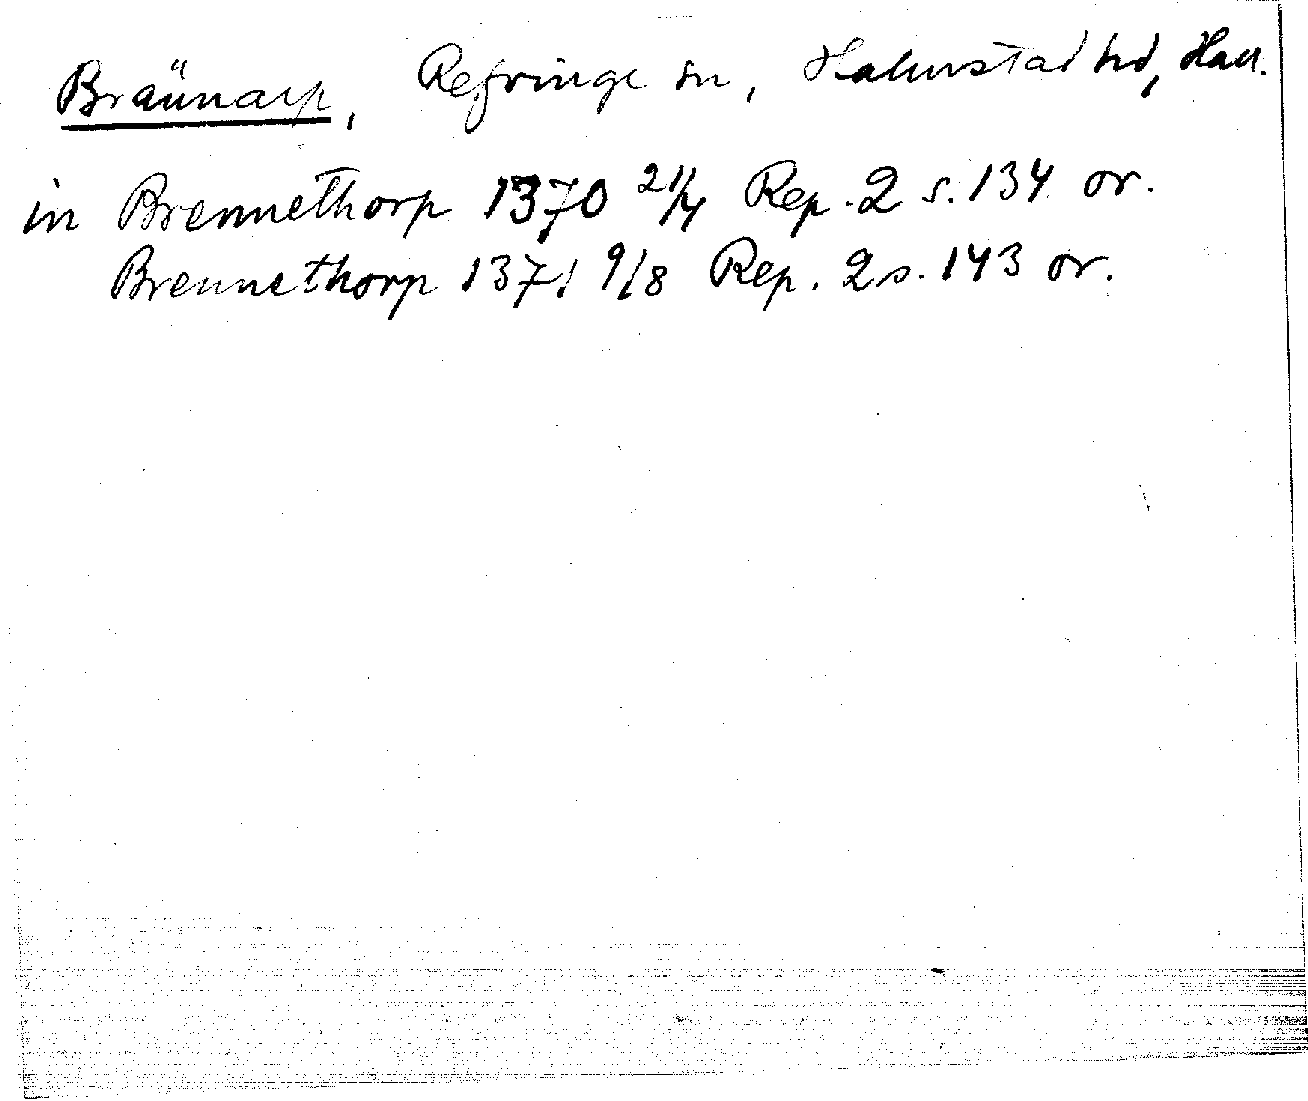 Brännarp, Refvinge sn, Halmstad hd, Hall.
in Brennethorp 1370 21/4 Rep. 2 s. 134 or.
Brennethorp 1371 9/8 Rep. 2 s. 143 or.